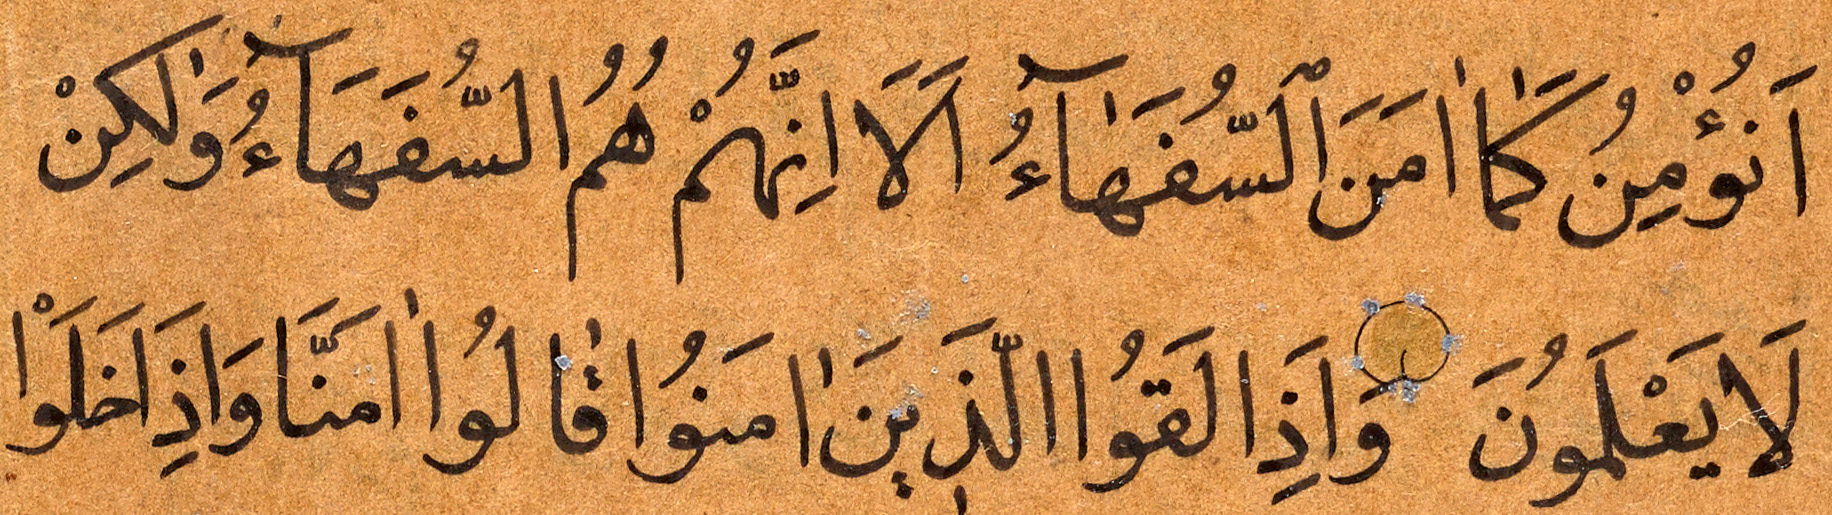 اَنُؤْمِنُ كَمَٓا اٰمَنَ السُّفَهَٓاءُ اَلَٓا اِنَّهُمْ هُمُ السُّفَهَٓاءُ وَلٰكِنْ
لَا يَعْلَمُونَ وَاِذَا لَقُوا الَّذٖينَ اٰمَنُوا قَالُوا اٰمَنَّا وَاِذَا خَلَوْا